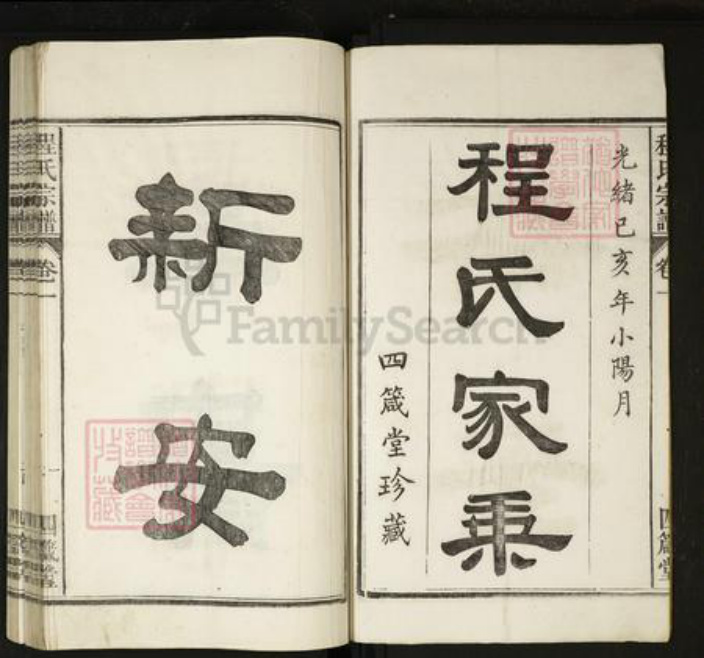 光緒己亥年小陽月
程氏家乗
四箴堂珍藏
新安
程氏宗譜 卷一 四箴堂
程氏宗譜 卷一 四箴堂
FamilySearch